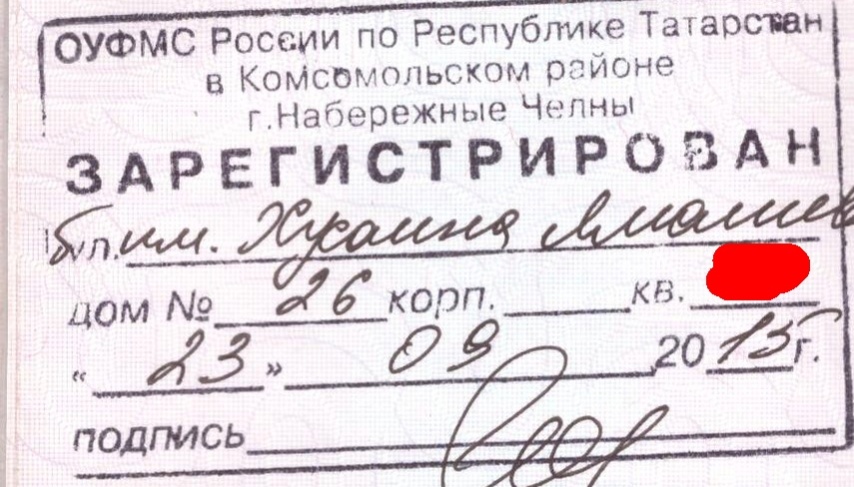 ОУФМС России по Республике Татарстан
в Комсомольском районе
г.Набережные Челны
ЗАРЕГИСТРИРОВАН
бул. им. Хусаина Ямашев
дом № 26 корп. кв.
« 23 » 09 2015г.
подпись